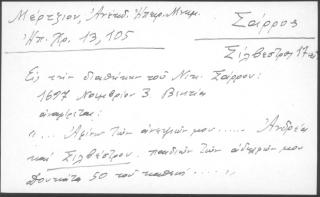 Μέρτζιου, Ἀνέκδ. Ἠπειρ. Μνημ.
Σάρρος
Ἠπ. Χρ. 13, 105
Σίλβεστρος 17 αἰ.
Εἰς τὴν διαθήκην τοῦ Νικ. Σάρρου:
1697 Νοεμβρίου 3 Βενετία
ἀναφέρεται:
"... Ἀφίνω τῶν ἀνεψιῶν μου ..... Ἀνδρέα
καὶ Σιλβέστρου παιδιῶν τῶν ἀδελφῶν μου
δουκάτα 50 τοῦ καθενός ..... "